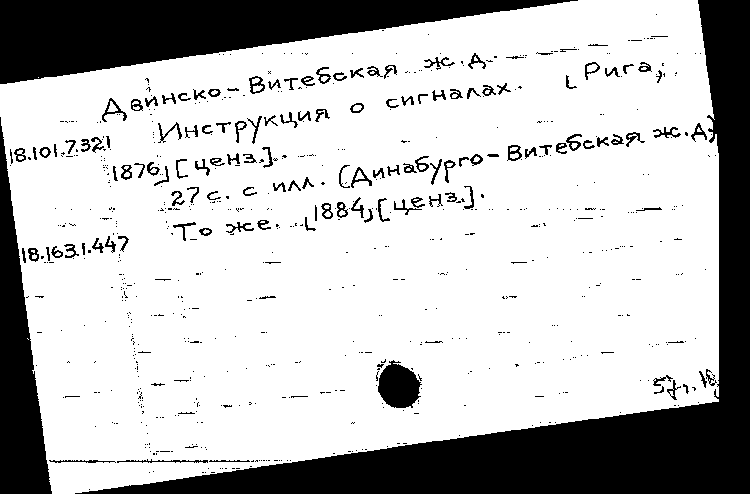 Двинско-Витебская ж.д.
Инструкция о сигналах. [Рига,
18.101.7.321
1876] [ценз.].
27 с. с илл. (Динабурго-Витебская ж.д.)
То же. [1884] [ценз.].
18.163.1.447